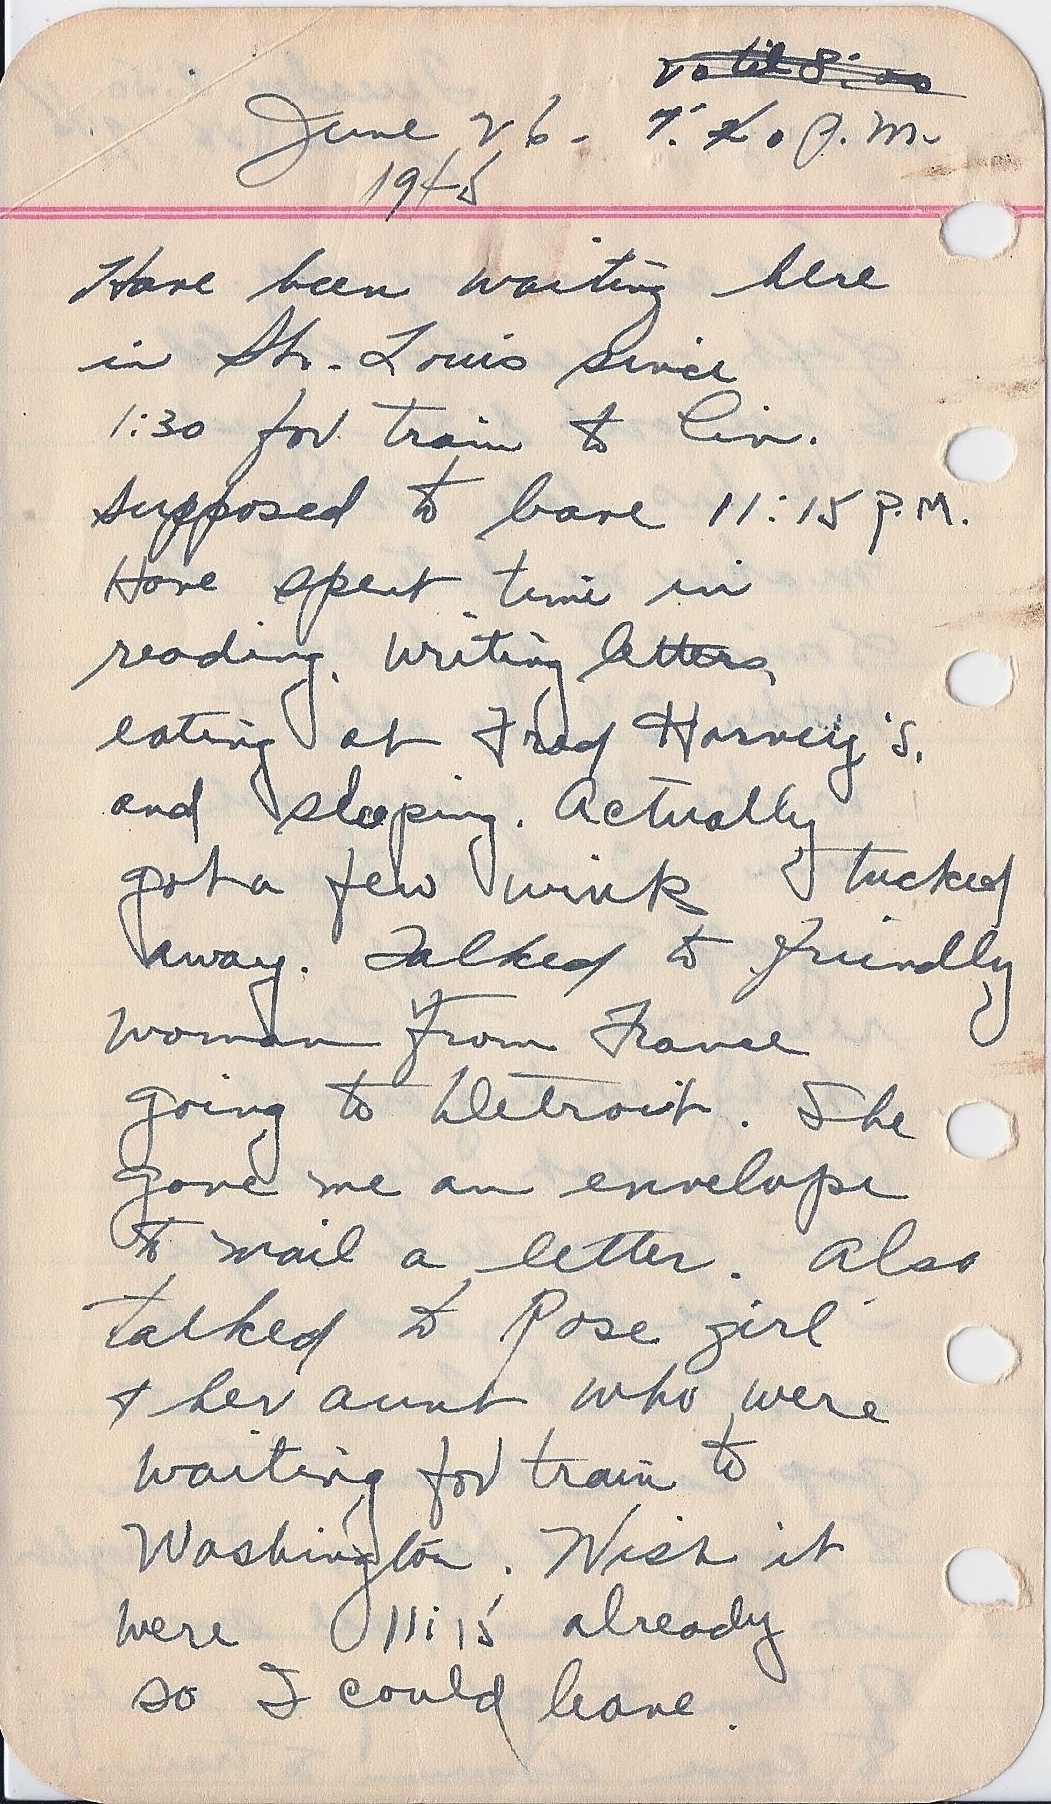 20 til 8:00
June 26 - 7:40 P.M.
1945
Have been waiting here
in St. Louis since
1:30 for train to Cin.
supposed to leave 11:15 P.M.
Have spent time in
reading, writing letters,
eating at Fred Harvey's,
and sleeping. Actually
got a few winks tucked
away. Talked to friendly
woman from France
going to Detroit. She
gave me an envelope
to mail a letter. Also
talked to girl
+ her aunt who were
waiting for train to
Washington. Wish it
were 11:15 already
so I could leave.